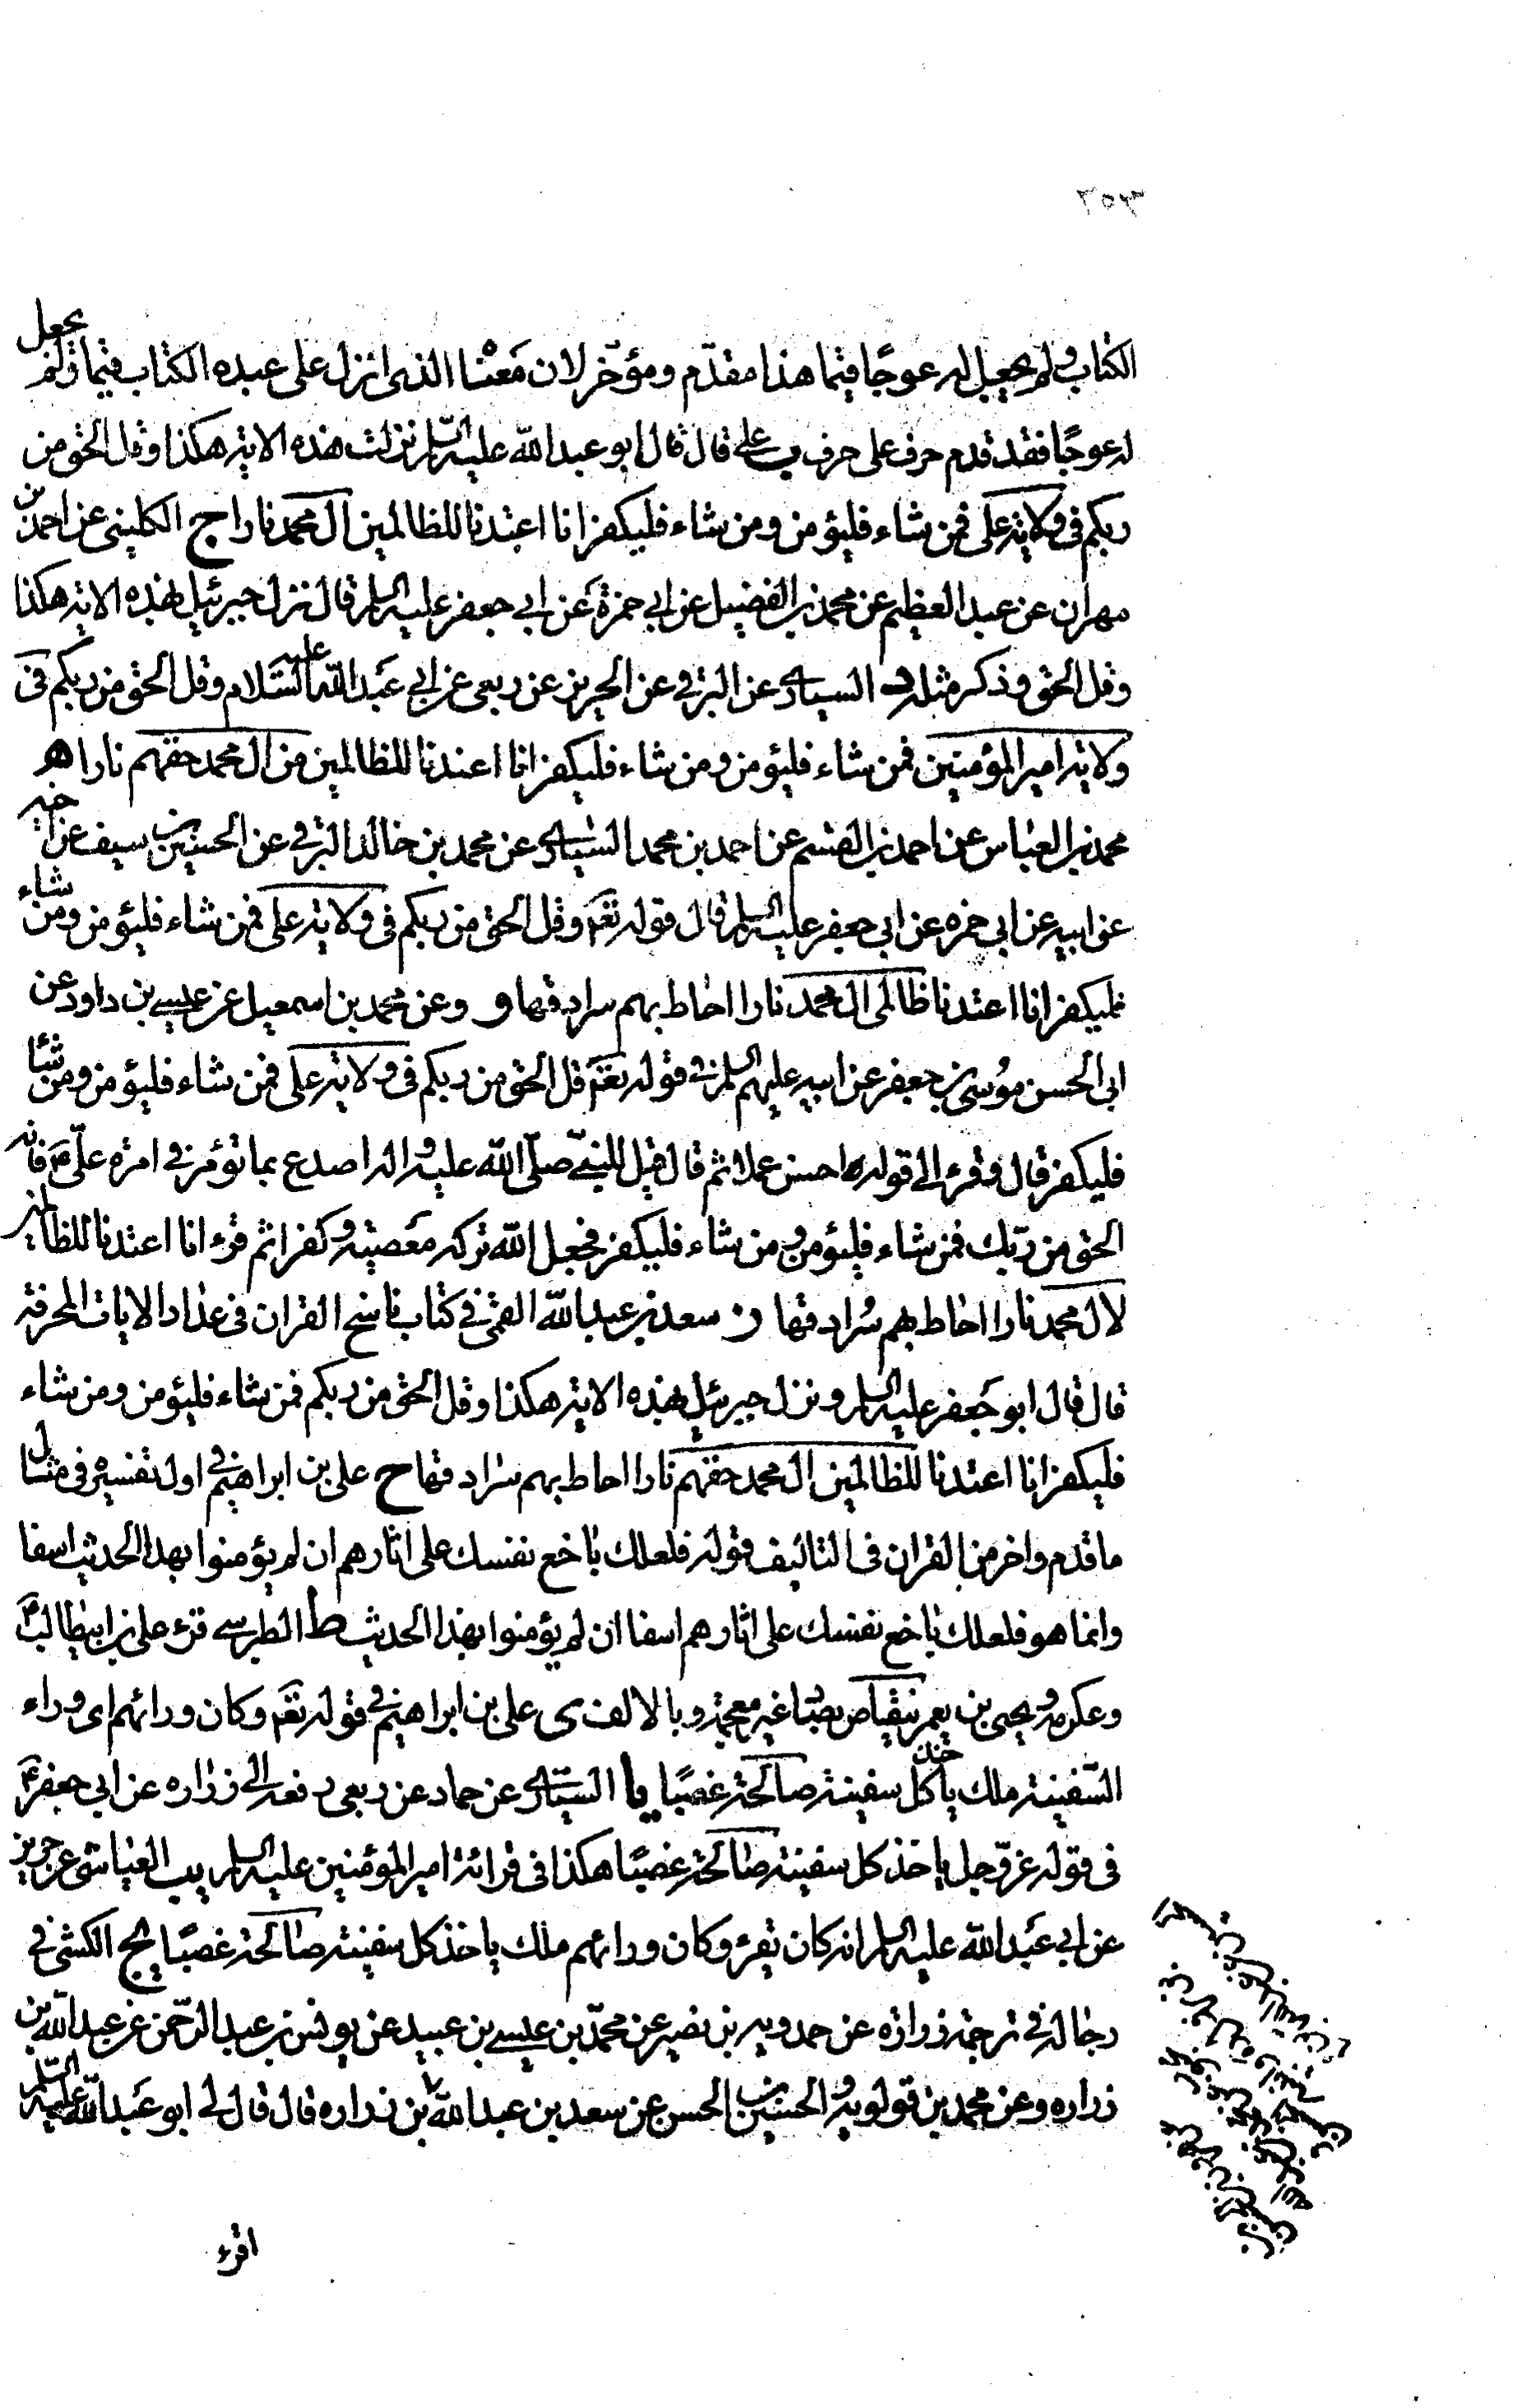 ٢٥٣
الكتاب ولم يجعل له عوجًا قيما هذا مقدّم ومؤخّر لان معْنا الذى انزل على عبده الكتاب قيما ولم يجعل
له عوجًا فقد قدم حرف على حرف ب على قال قال ابو عبد الله عليه السلم نزلت هذه الاية هكذا وقل الحق من
ربكم فى ولاية على فمن شاء فليؤمن ومن شاء فليكفر انا اعتدنا للظالمين ال محمد نارا ج الكلينى عن احمد بن
مهران عن عبد العظيم عن محمد بن الفضيل عن ابى حمزة عن ابى جعفر عليه السلم قال نزل جبرئيل بهذه الاية هكذا
وقل الحق وذكر مثله د السيارى عن البرقى عن الحريز عن ربعى عن ابى عبد الله عليه السّلام وقل الحق من ربكم فى
ولاية امير المؤمنين فمن شاء فليؤمن ومن شاء فليكفر انا اعتدنا للظالمين من ال محمد حقهم نارا ه
محمد بن العباس عن احمد بن القسم عن احمد بن محمد السيارى عن محمد بن خالد البرقى عن الحسين بن سيف عن اخيه
عن ابيه عن ابى حمزه عن ابى جعفر عليه السلم قال قوله تعم وقل الحق من ربكم فى ولاية على فمن شاء فليؤمن ومن شاء
فليكفر انا اعتدنا ظالمى ال محمد نارا احاط بهم سرادقها و وعن محمد بن اسمعيل عن عيسى بن داود عن
ابى الحسن موسى بن جعفر عن ابيه عليهم السلم فى قوله تعم قل الحق من ربكم فى ولاية على فمن شاء فليؤمن ومن شا
فليكفر قال وقرء الى قوله احسن عملا ثم قال قيل للنبىّ صلّى الله عليه واله اصدع بما تؤمر فى امره علىّ ع فانه
الحق من ربّك فمن شاء فليؤمن ومن شاء فليكفر فجعل الله تركه معصية وكفرا ثم قرء انا اعتدنا للظالمين
لال محمد نارا احاط بهم سُرادقها ز سعد بن عبد الله القمى فى كتاب ناسخ القران فى عداد الايات المحرفة
قال قال ابو جعفر عليه السلم ونزل جبرئيل بهذه الاية هكذا وقل الحق من ربكم فمن شاء فليؤمن ومن شاء
فليكفر انا اعتدنا للظالمين ال محمد حقهم نارا احاط بهم سرادقها ح على بن ابراهيم فى اول تفسيره فى مثال
ما قدم واخر من القران فى التاليف قوله فلعلك باخع نفسك على اثارهم ان لم يؤمنوا بهذا الحديث اسفا
وانما هو فلعلك باخع نفسك على اثارهم اسفا ان لم يؤمنوا بهذا الحديث ط الطبرسى قرء على بن ابيطالب ع
وعكرمة ويحيى بن يعمر ينقاص بصاد غير معجمة وبالالف ى على بن ابراهيم فى قوله تعم وكان ورائهم اى وراء
السّفينة ملك ياخذ كل سفينة صالحة غصبًا يا السيارى عن حماد عن ربعى رفعه الى زراره عن ابى جعفر ع
فى قوله عزّوجل ياخذ كل سفينة صالحة غصبًا هكذا فى قرائة امير المؤمنين عليه السلم يب العياشى عن حريز
عن ابى عبد الله عليه السلم انه كان يقرء وكان ورائهم ملك ياخذ كل سفينة صالحة غصبًا يج الكشى فى
رجاله فى ترجمة زرارة عن حمدويه بن نصير عن محمّد بن عيسى بن عبيد عن يونس بن عبد الرّحمن عن عبد الله بن
زراره وعن محمد بن قولويه والحسين بن الحسن عن سعد بن عبد الله بن زراره قال قال لى ابو عبد الله عليه السّلم
اقرء